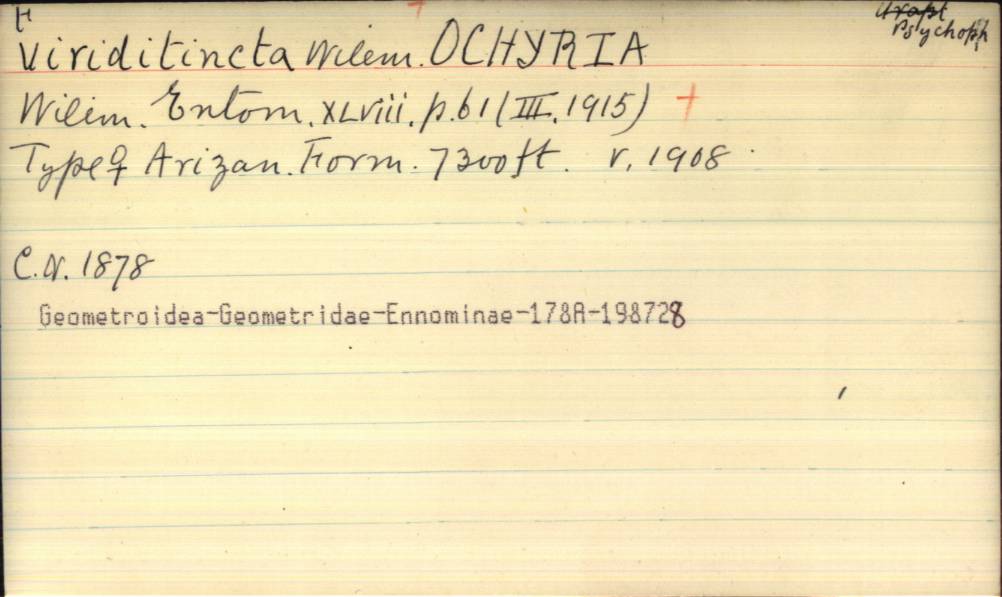 H
Psychoph
Viriditincta Wilem. OCHYRIA
Wilem. Entom. XLViii. p. 61 (III. 1915) +
Type ♀ Arizan. Form. 7300ft. V. 1908.
C.N. 1878
Geometroidea-Geometridae-Ennominae-178A-198728